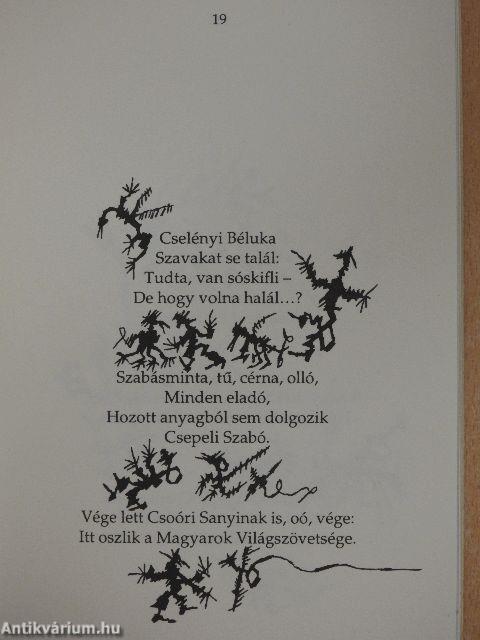 19
Cselényi Béluka
Szavakat se talál:
Tudta, van sóskifli –
De hogy volna halál...?
Szabásminta, tű, cérna, olló,
Minden eladó,
Hozott anyagból sem dolgozik
Csepeli Szabó.
Vége lett Csoóri Sanyinak is, oó, vége:
Itt oszlik a Magyarok Világszövetsége.
Antikvárium.hu